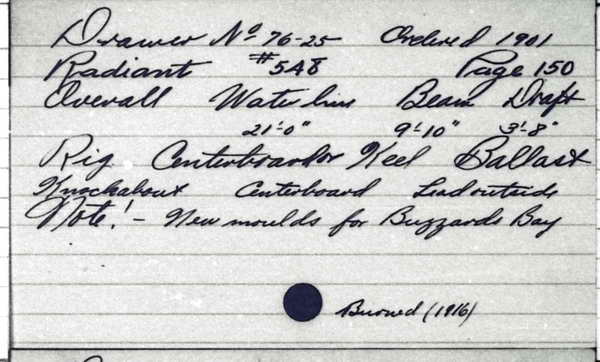 Drawer No 76-25 Ordered 1901
Radiant #548 Page 150
Overall Water line Beam Draft
21'-0" 9'-10" 3'-8"
Rig Centerboard or Keel Ballast
Knockabout Centerboard Lead outside
Note! - New moulds for Buzzards Bay
Burned (1916)